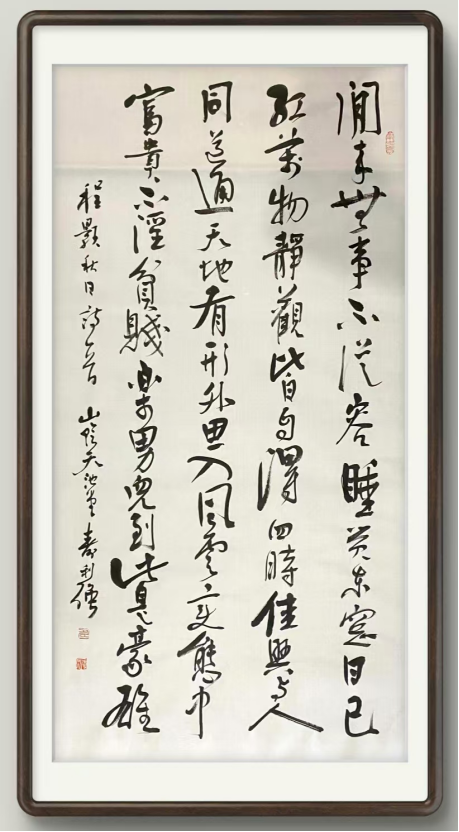 閒来無事不從容睡覺東窗日已
紅萬物靜觀皆自得四時佳興与人
同道通天地有形外思入風雲变態中
富貴不淫貧賤樂男兒到此是豪雄
程顥秋日詩一首 山陰天池 壽利強